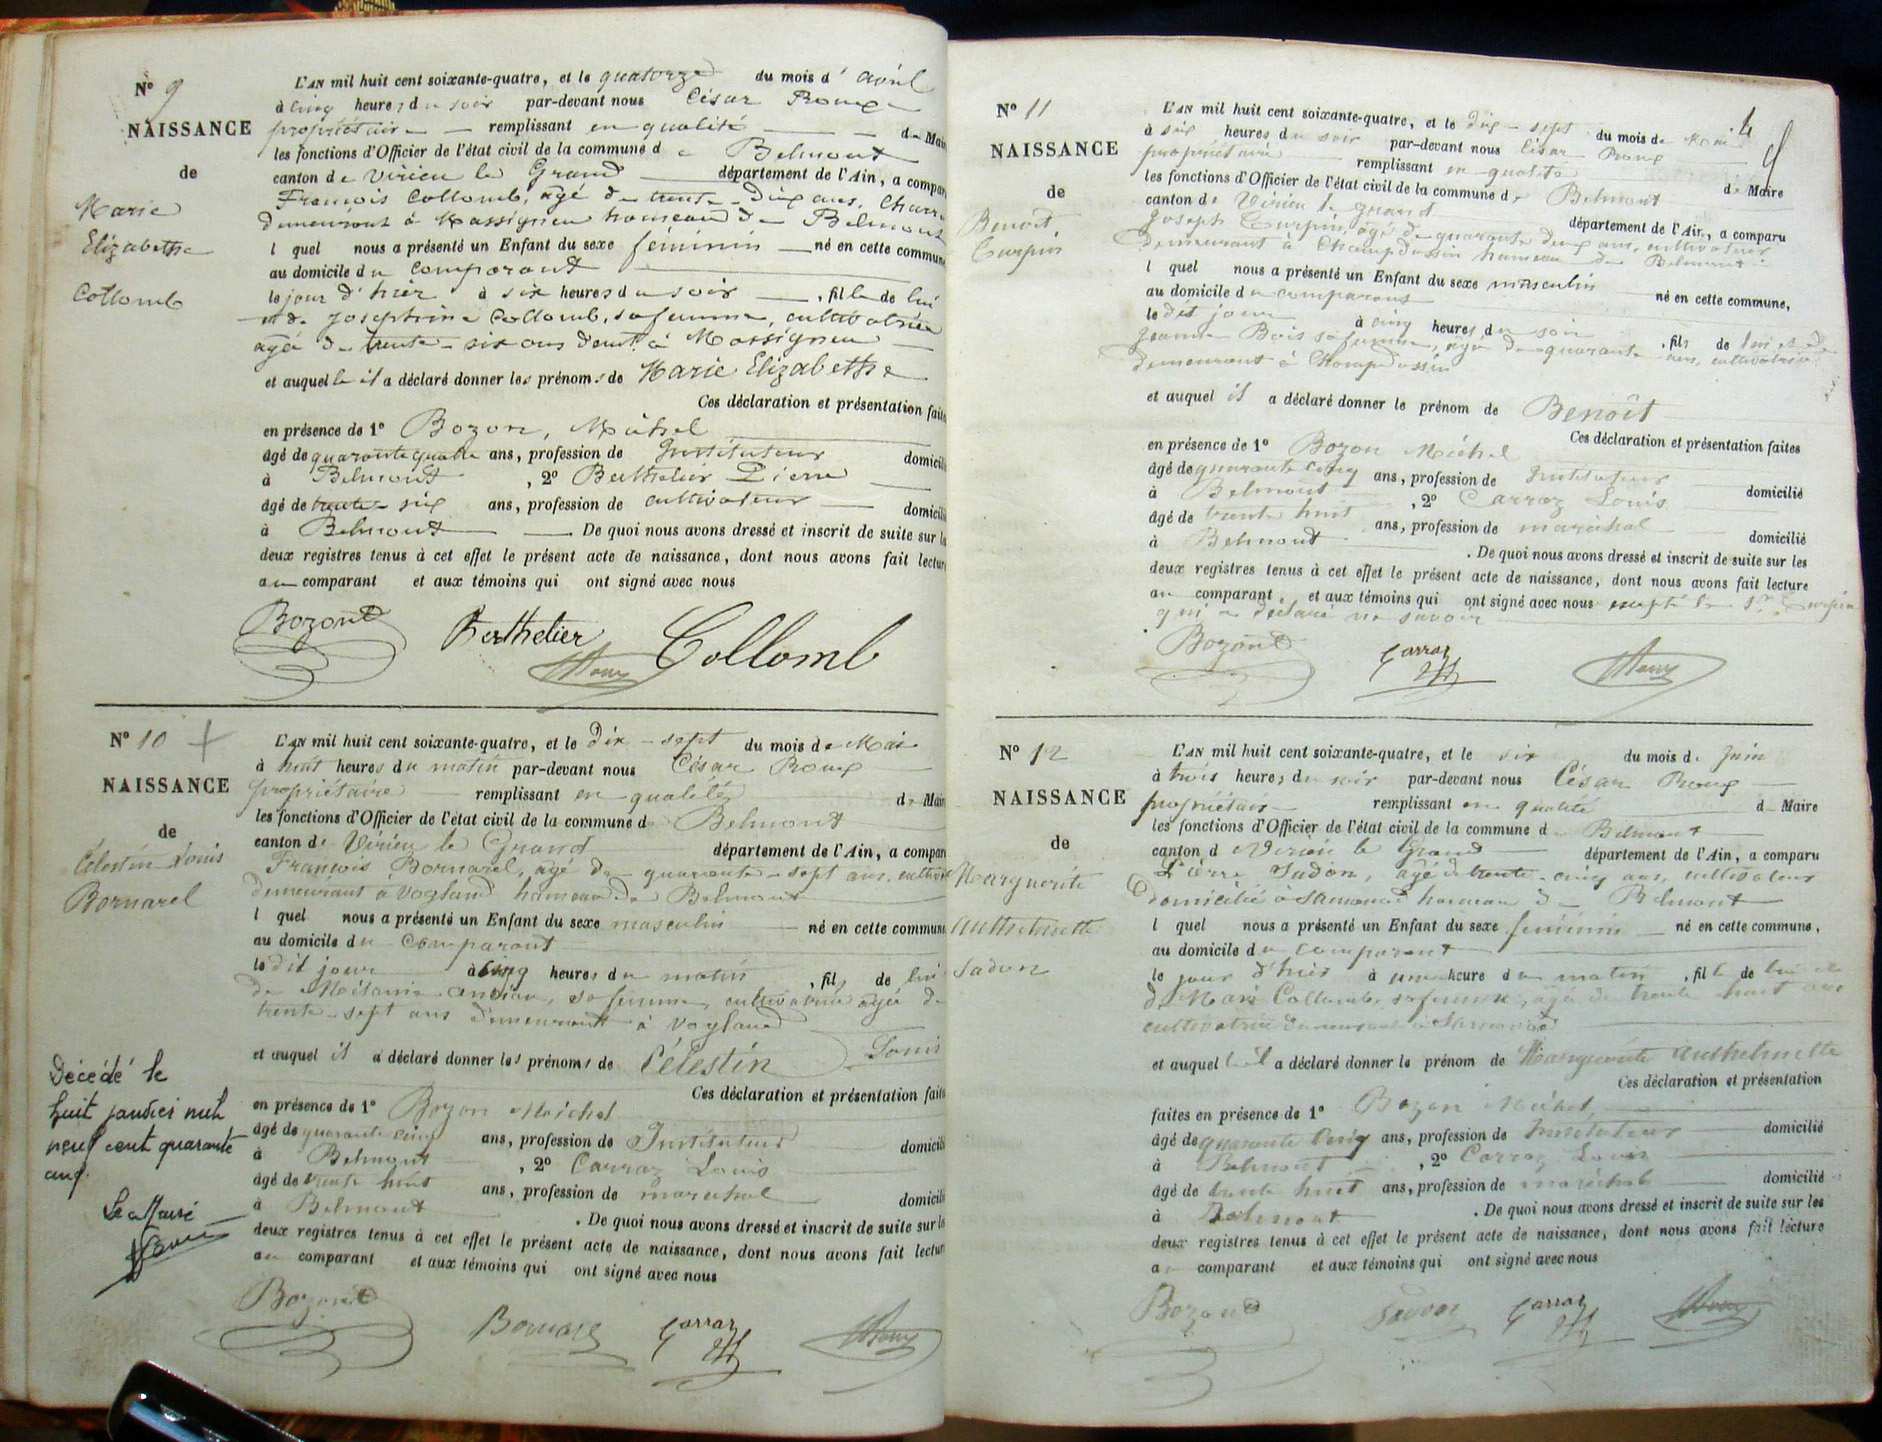 N° 9
NAISSANCE
de
Marie
Elizabethe
Collomb
L'AN mil huit cent soixante-quatre, et le quatorze du mois d' avril
à cinq heures du soir par-devant nous César Roux
propriétaire remplissant en qualité de Mair
les fonctions d'Officier de l'état civil de la commune de Belmont
canton de Virieu le Grand département de l'Ain, a compar
François Collomb, âgé de trente-dix ans,
demeurant à Massignieu hameau de Belmont
lequel nous a présenté un Enfant du sexe féminin né en cette commune
au domicile du comparant
le jour d'hier à six heures du soir, fille de lui
et de Josephine Collomb, sa femme, cultivatrice
agée de trente-six ans demt à Massignieu
et auquel le il a déclaré donner les prénoms de Marie Elizabethe
Ces déclaration et présentation faite
en présence de 1° Bozon, Michel
âgé de quarante quatre ans, profession de Instituteur domicili
à Belmont, 2° Berthelier Pierre
âgé de trente-six ans, profession de cultivateur domicili
à Belmont De quoi nous avons dressé et inscrit de suite sur le
deux registres tenus à cet effet le présent acte de naissance, dont nous avons fait lecture
au comparant et aux témoins qui ont signé avec nous
Bozon Berthelier Collomb
Roux
N° 10
NAISSANCE
de
Célestin Louis
Bornarel
Décédé le
huit janvier mil
neuf cent quarante
cinq.
Le Maire
L'AN mil huit cent soixante-quatre, et le dix-sept du mois de Mai
à huit heures du matin par-devant nous César Roux
propriétaire remplissant en qualité de Mair
les fonctions d'Officier de l'état civil de la commune d Belmont
canton de Virieu le Grand département de l'Ain, a compar
François Bornarel, âgé de quarante-sept ans, cultiv
demeurant à Vogland hameau de Belmont
lequel nous a présenté un Enfant du sexe masculin né en cette commune
au domicile du comparant
le dit jour à cinq heures du matin, fils de lui
de Mélanie, sa femme, cultivatrice agée de
trente-sept ans demeurant à Vogland
et auquel il a déclaré donner les prénoms de Célestin Louis
Ces déclaration et présentation faite
en présence de 1° Bozon Michel
âgé de quarante cinq ans, profession de Instituteur domicili
à Belmont, 2° Carraz Louis
âgé de trente huit ans, profession de maréchal domicili
à Belmont. De quoi nous avons dressé et inscrit de suite sur le
deux registres tenus à cet effet le présent acte de naissance, dont nous avons fait lectur
au comparant et aux témoins qui ont signé avec nous
Bozon Bornarel Carraz Roux
N° 11
NAISSANCE
de
Benoît
Curpin
L'AN mil huit cent soixante-quatre, et le dix-sept du mois de Mai
à six heures du soir par-devant nous César Roux
propriétaire remplissant en qualité de Maire
les fonctions d'Officier de l'état civil de la commune de Belmont
canton de Virieu le grand département de l'Ain, a comparu
Joseph Curpin, âgé de quarante deux ans, cultivateur
demeurant à Champdossin hameau de Belmont
lequel nous a présenté un Enfant du sexe masculin né en cette commune,
au domicile du comparant
le dit jour à cinq heures du soir, fils de lui et de
Jeanne Bois sa femme, agé de quarante ans, cultivatrice
demeurant à Champdossin
et auquel il a déclaré donner le prénom de Benoît
Ces déclaration et présentation faites
en présence de 1° Bozon Michel
âgé de quarante cinq ans, profession de Instituteur domicilié
à Belmont, 2° Carraz Louis
âgé de trente huit ans, profession de maréchal domicilié
à Belmont. De quoi nous avons dressé et inscrit de suite sur les
deux registres tenus à cet effet le présent acte de naissance, dont nous avons fait lecture
au comparant et aux témoins qui ont signé avec nous excepté le Sr Curpin
qui a déclaré ne savoir
Bozon Carraz Roux
N° 12
NAISSANCE
de
Marguerite
Anthelmette
Sadon
L'AN mil huit cent soixante-quatre, et le six du mois de Juin
à trois heures du soir par-devant nous César Roux
propriétaire remplissant en qualité de Maire
les fonctions d'Officier de l'état civil de la commune d Belmont
canton d Virieu le Grand département de l'Ain, a comparu
Pierre Sadon, âgé de trente-cinq ans, cultivateur
domicilié à hameau de Belmont
lequel nous a présenté un Enfant du sexe féminin né en cette commune,
au domicile du comparant
le jour d'hier à une heure du matin, fille de lui et
de Marie Collomb, sa femme, agée de trente huit ans
cultivatrice demeurant à
et auquel le il a déclaré donner le prénom de Marguerite Anthelmette
Ces déclaration et présentation
faites en présence de 1° Bozon Michel
âgé de quarante cinq ans, profession de Instituteur domicilié
à Belmont, 2° Carraz Louis
âgé de trente huit ans, profession de maréchal domicilié
à Belmont. De quoi nous avons dressé et inscrit de suite sur les
deux registres tenus à cet effet le présent acte de naissance, dont nous avons fait lecture
au comparant et aux témoins qui ont signé avec nous
Bozon Sadon Carraz Roux